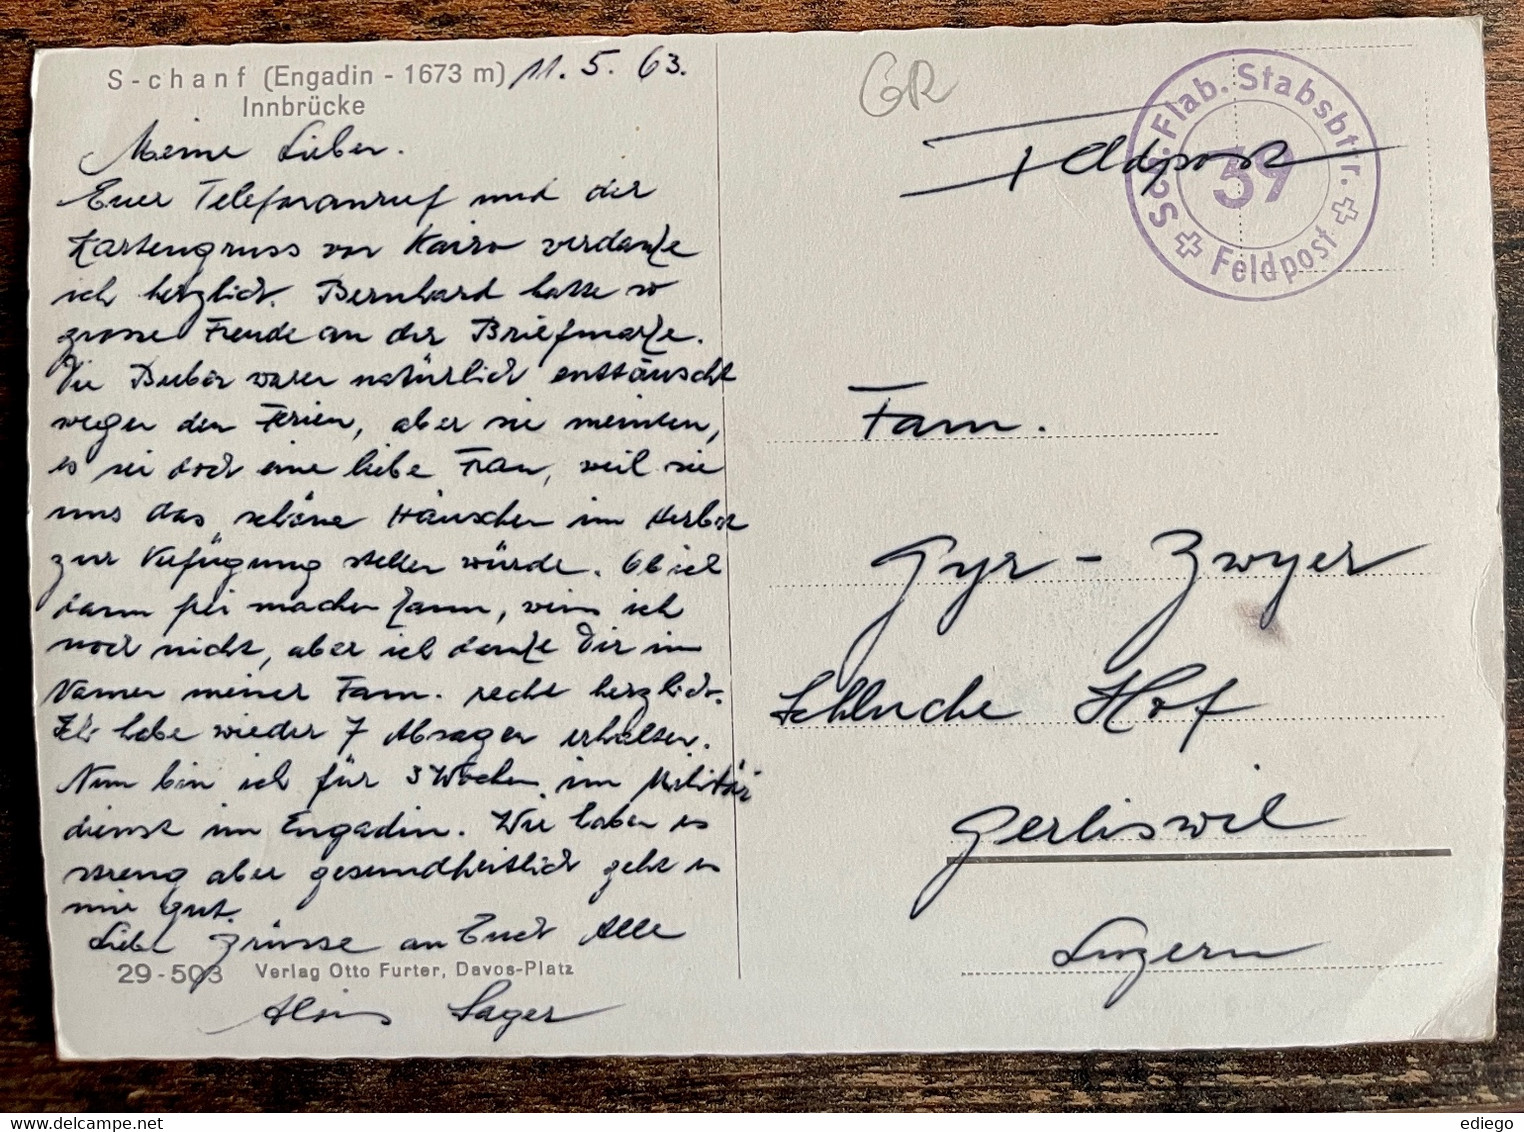 S-chanf (Engadin - 1673 m) 11. 5. 63.
Innbrücke
Meine Lieben.
Euer Telefonanruf und der
Kartengruss von Kairo verdanke
ich herzlich. Bernhard hatte so
grosse Freude an der Briefmarke.
Die Buben waren natürlich enttäuscht
wegen den Ferien, aber sie meinten,
es sei doch eine liebe Frau, weil sie
uns das schöne Häuschen im Herbst
zur Verfügung stellen würde. Ob ich
dann frei machen kann, weiss ich
noch nicht, aber ich danke Dir im
Namen meiner Fam. recht herzlich.
Ich habe wieder 7 Absagen erhalten.
Nun bin ich für 3 Wochen im Militär
dienst im Engadin. Wir haben es
streng aber gesundheitlich geht es
mir gut.
Liebe Grüsse an Euch Alle
29-503 Verlag Otto Furter, Davos-Platz
Alois Sager
GR
Feldpost
Flab. Stabsbttr.
39
Feldpost
Fam.
Gyr - Zwyer
Schluche Hof
Gerliswil
Luzern
delcampe.net
ediego